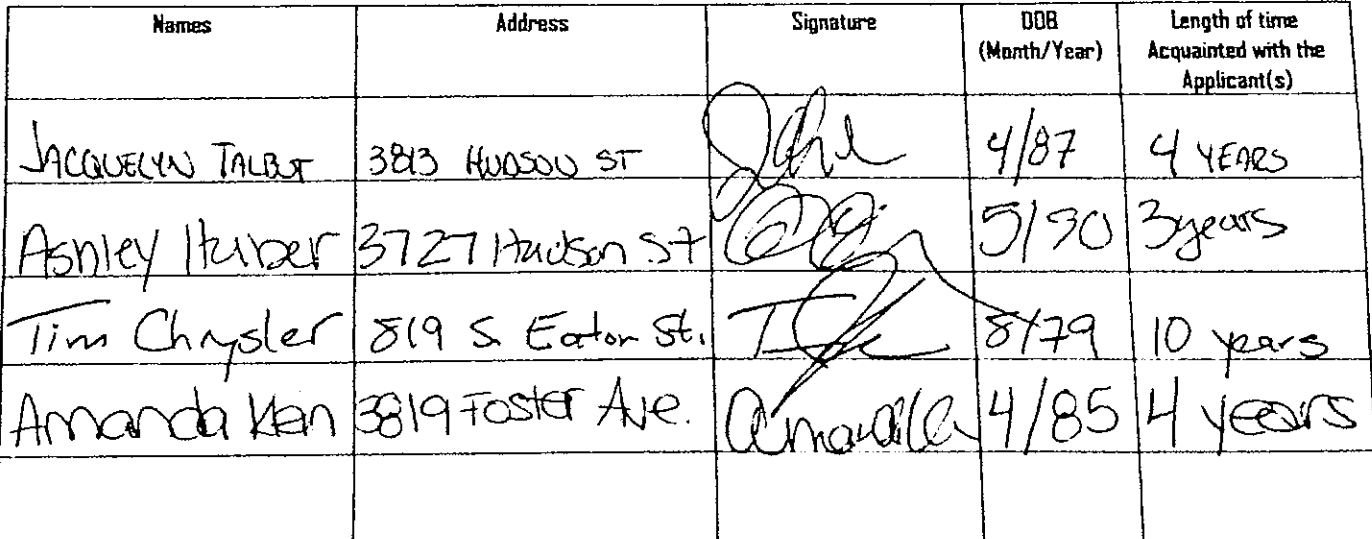 Names Address Signature DOB (Month/Year) Length of time Acquainted with the Applicant(s)
JACQUELYN TALBOT 3813 HUDSON ST 4/87 4 YEARS
Ashley Huber 3727 Hudson St 5/90 3 years
Tim Chrysler 819 S. Eaton St. 8/79 10 years
Amanda Klein 3819 Foster Ave. 4/85 4 years